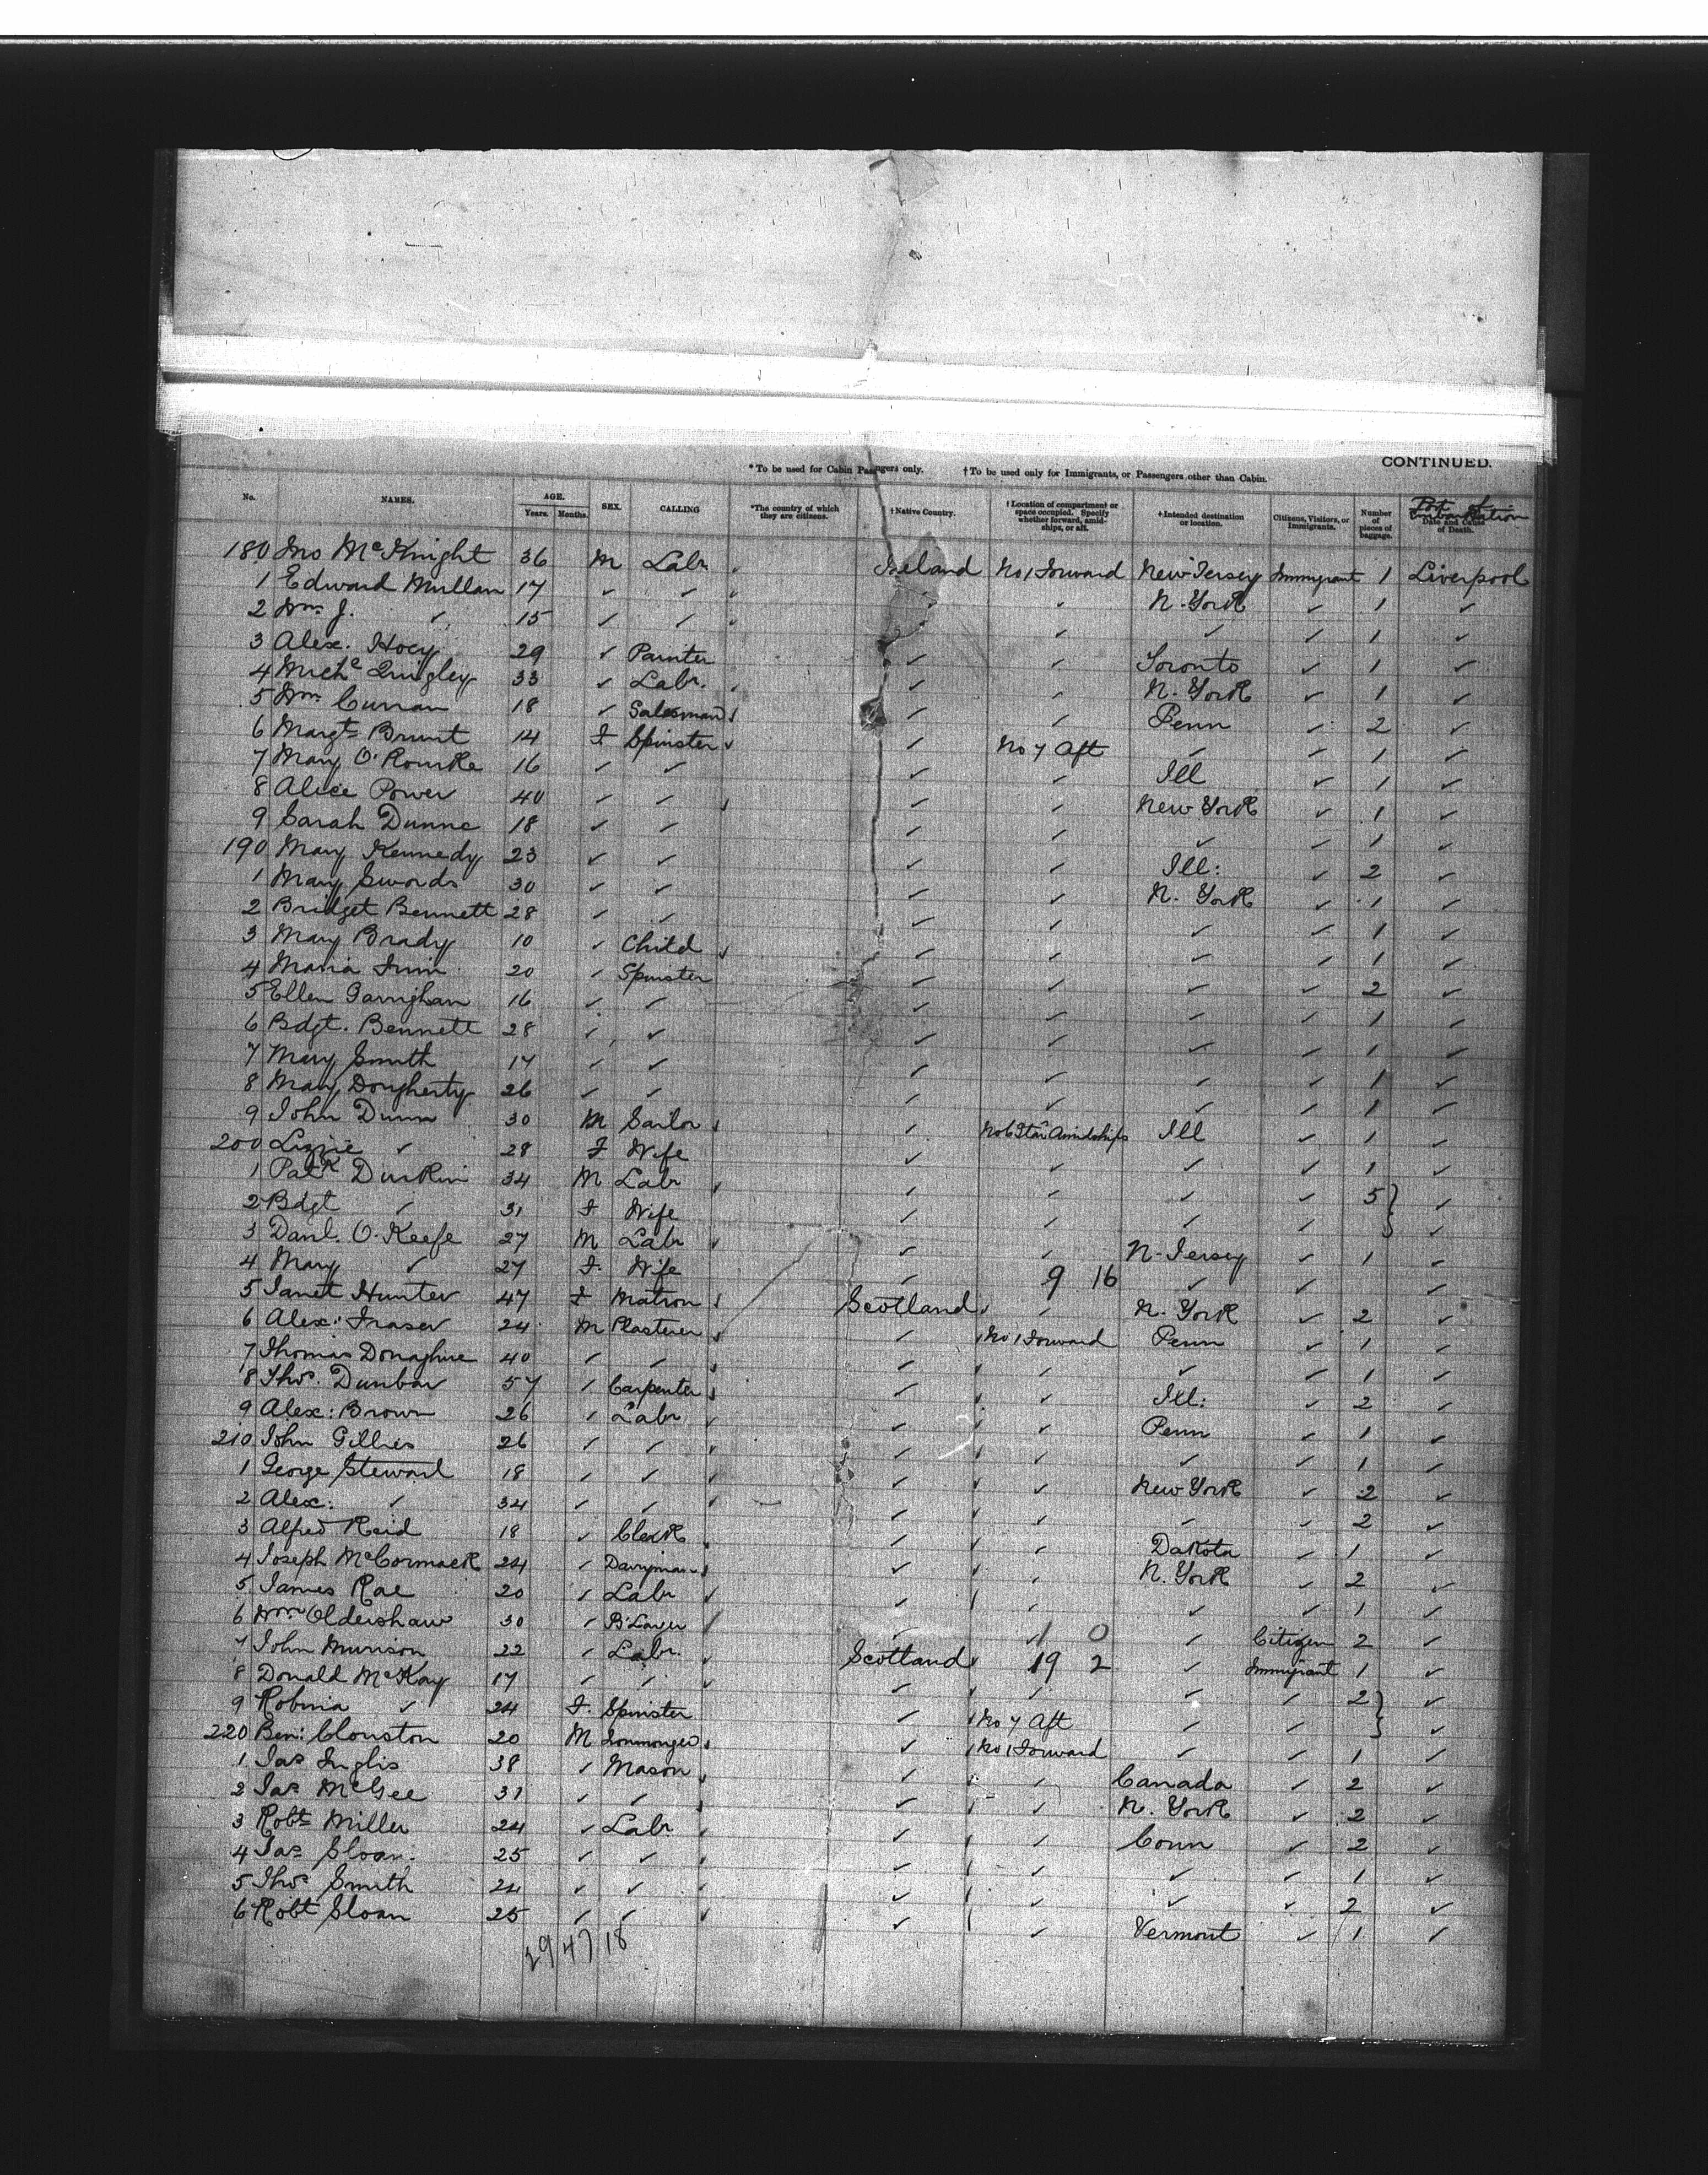 CONTINUED.
* To be used for Cabin Passengers only. † To be used only for Immigrants, or Passengers other than Cabin.
No. NAMES. AGE. Years. Months. SEX. CALLING *The country of which they are citizens. †Native Country. †Location of compartment or space occupied. Specify whether forward, amidships, or aft. †Intended destination or location. Citizens, Visitors, or Immigrants. Number of pieces of baggage. Date and Cause of Death. Port of Embarkation
180 Jno McKnight 36 M Labr. Ireland No 1 Forward New Jersey Immigrant 1 Liverpool
1 Edward Mullan 17 ✓ ✓ ✓ N. York ✓ 1 ✓
2 Wm. J. ✓ 15 ✓ ✓ ✓ ✓ ✓ 1 ✓
3 Alex. Hoey 29 ✓ Painter ✓ ✓ Toronto ✓ 1 ✓
4 Michl Quigley 33 ✓ Labr. ✓ ✓ N. York ✓ 1 ✓
5 Wm. Curran 18 ✓ Salesman ✓ ✓ Penn ✓ 2 ✓
6 Margt Brunt 14 F Spinster ✓ No 7 Aft ✓ ✓ 1 ✓
7 Mary O'Rourke 16 ✓ ✓ ✓ ✓ Ill ✓ 1 ✓
8 Alice Power 40 ✓ ✓ ✓ ✓ New York ✓ 1 ✓
9 Sarah Dunne 18 ✓ ✓ ✓ ✓ ✓ ✓ 1 ✓
190 Mary Kennedy 23 ✓ ✓ ✓ ✓ Ill: ✓ 2 ✓
1 Mary Swords 30 ✓ ✓ ✓ ✓ N. York ✓ 1 ✓
2 Bridget Bennett 28 ✓ ✓ ✓ ✓ ✓ ✓ 1 ✓
3 Mary Brady 10 ✓ Child ✓ ✓ ✓ ✓ 1 ✓
4 Maria 20 ✓ Spinster ✓ ✓ ✓ ✓ 2 ✓
5 Ellen Garrighan 16 ✓ ✓ ✓ ✓ ✓ ✓ 1 ✓
6 Bdgt. Bennett 28 ✓ ✓ ✓ ✓ ✓ ✓ 1 ✓
7 Mary Smith 17 ✓ ✓ ✓ ✓ ✓ ✓ 1 ✓
8 Mary Dougherty 26 ✓ ✓ ✓ ✓ ✓ ✓ 1 ✓
9 John Dunn 30 M Sailor ✓ No 6 Star Amidships Ill ✓ 1 ✓
200 Lizzie ✓ 28 F Wife ✓ ✓ ✓ ✓ 1 ✓
1 Patk Durkin 34 M Labr ✓ ✓ ✓ ✓ 5 } ✓
2 Bdgt ✓ 31 F Wife ✓ ✓ ✓ ✓ ✓
3 Danl. O'Keefe 27 M Labr ✓ ✓ N-Jersey ✓ 1 ✓
4 Mary ✓ 27 F. Wife ✓ 9 16 ✓ ✓ ✓
5 Janet Hunter 47 F Matron Scotland ✓ N. York ✓ 2 ✓
6 Alex: Fraser 24 M Plasterer ✓ No 1 Forward Penn ✓ 1 ✓
7 Thomas Donaghue 40 ✓ ✓ ✓ ✓ ✓ ✓ 1 ✓
8 Thos. Dunbar 57 ✓ Carpenter ✓ ✓ Ill: ✓ 2 ✓
9 Alex: Brown 26 ✓ Labr ✓ ✓ Penn ✓ 1 ✓
210 John Gillies 26 ✓ ✓ ✓ ✓ ✓ ✓ 1 ✓
1 George Stewart 18 ✓ ✓ ✓ ✓ New York ✓ 2 ✓
2 Alex: ✓ 34 ✓ ✓ ✓ ✓ ✓ ✓ 2 ✓
3 Alfred Reid 18 ✓ Clerk ✓ ✓ Dakota ✓ 1 ✓
4 Joseph McCormack 24 ✓ Dairyman ✓ ✓ N. York ✓ 2 ✓
5 James Rae 20 ✓ Labr ✓ ✓ ✓ ✓ 1 ✓
6 Wm Oldershaw 30 ✓ B'Layer ✓ 1 0 ✓ Citizen 2 ✓
7 John Munson 22 ✓ Labr. Scotland 19 2 ✓ Immigrant 1 ✓
8 Donald McKay 17 ✓ ✓ ✓ ✓ ✓ ✓ 2 } ✓
9 Robina ✓ 24 F. Spinster ✓ No 7 Aft ✓ ✓ ✓
220 Ben: Clouston 20 M Ironmonger ✓ No 1 Forward ✓ ✓ 1 ✓
1 Jas Inglis 38 ✓ Mason ✓ ✓ Canada ✓ 2 ✓
2 Jas McGee 31 ✓ ✓ ✓ ✓ N. York ✓ 2 ✓
3 Robt Miller 24 ✓ Labr. ✓ ✓ Conn ✓ 2 ✓
4 Jas Sloan. 25 ✓ ✓ ✓ ✓ ✓ ✓ 1 ✓
5 Thos Smith 24 ✓ ✓ ✓ ✓ ✓ ✓ 2 ✓
6 Robt Sloan 25 ✓ ✓ ✓ ✓ Vermont ✓ 1 ✓
29/47/18